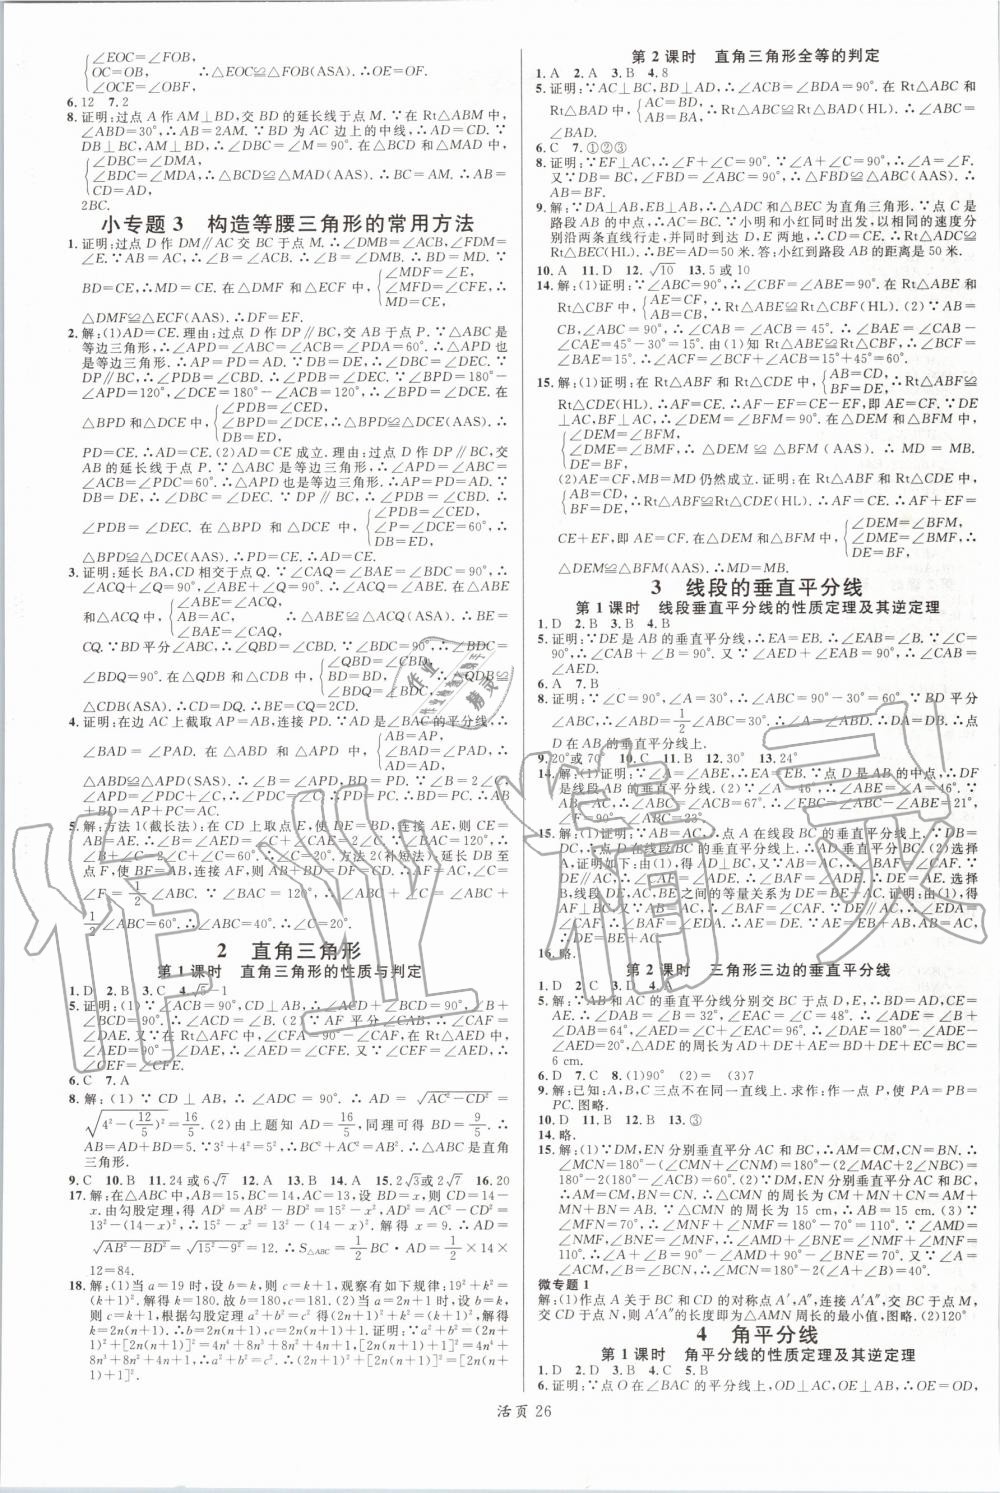 ∠EOC=∠FOB,
OC=OB, ∴△EOC≌△FOB(ASA).∴EC=FB.
∠OCE=∠OBF,
6.12 7.2
8.证明:过点 A 作 AM⊥BD,交 BD 的延长线于点 M.∵在 Rt△ABM 中,
∠ABD=30°,∴AB=2AM.∵BD 为 AC 边上的中线,∴AD=CD.∵
DB⊥BC,AM⊥BD,∴∠DBC=∠M=90°.在△BCD 和△MAD 中,
∠DBC=∠DMA,
∠BDC=∠MDA,∴△BDC≌△MDA(AAS).∴BC=AM.∴AB=
CD=AD,
2BC.
小专题 3 构造等腰三角形的常用方法
1.证明:过点 D 作 DM∥AC 交 BC 于点 M.∴∠DMB=∠ACB,∠FDM=
∠E.∵AB=AC,∴∠B=∠ACB.∴∠B=∠DMB.∴BD=MD.∵
∠MDF=∠E,
BD=CE,∴MD=CE.在△DMF 和△ECF 中, ∠MFD=∠CFE,∴
MD=CE,
△DMF≌△ECF(AAS).∴DF=EF.
2.解:(1)AD=CE.理由:过点 D 作 DP∥BC,交 AB 于点 P.∵△ABC 是
等边三角形,∴∠APD=∠ABC=∠APD=∠ACB=∠PCA=60°.∴△APD 也
是等边三角形.∴AP=PD=AD.∵DB=DE,∴∠DBC=∠DEC.∵
DP∥BC,∴∠PDB=∠CBD.∴∠PDB=∠DEC.∵∠BPD=180°−
∠APD=120°,∠DCE=180°−∠ACB=120°,∴∠BPD=∠DCE.在
∠PDB=∠CED,
△BPD 和△DCE 中, ∠BPD=∠DCE,∴△BPD≌△DCE(AAS).∴
DB=ED,
PD=CE.∴AD=CE.(2)AD=CE 成立.理由:过点 D 作 DP∥BC,交
AB 的延长线于点 P.∵△ABC 是等边三角形,∴∠A=∠ABC=∠P=
∠ACB=∠PDC=60°.∴△APD 也是等边三角形.∴AP=PD=AD.∵
DB=DE,∴∠DBC=∠DEC.∵DP∥BC,∴∠PDB=∠CBD.∴
∠PDB=∠CED,
∠PDB=∠DEC.在△BPD 和△DCE 中, ∠P=∠DCE=60°,∴
DB=ED,
△BPD≌△DCE(AAS).∴PD=CE.∴AD=CE.
3.证明:延长 BA,CD 相交于点 Q.∵∠CAQ=∠BAE=∠BEC=90°,∴
∠ACQ+∠Q=90°,∠ABE+∠Q=90°.∴∠ACQ=∠ABE.在△ABE
∠ABE=∠ACQ,
和△ACQ 中, AB=AC, ∴△ABE≌△ACQ(ASA).∴BE=
∠BAE=∠CAQ,
CQ.∵BD 平分∠ABC,∴∠QBD=∠CBD.∵BD⊥CD,∴∠CDB=
∠QBD=∠CBD,
∠BDQ=90°.在△QDB 和△CDB 中, BD=BD, ∴△QDB≌
∠QDB=∠CDB,
△CDB(ASA).∴CD=DQ.∴BE=CQ=2CD.
4.证明:在边 AC 上截取 AP=AB,连接 PD.∵AD 是∠BAC 的平分线,∴
AB=AP,
∠BAD=∠PAD.在△ABD 和△APD 中, ∠BAD=∠PAD,∴
AD=AD,
△ABD≌△APD(SAS).∴∠B=∠APD,BD=PD.∵∠B=2∠C,
∠APD=∠PDC+∠C,∴∠PDC=∠C.∴PD=PC.∴BD=PC.∴AB
+BD=AP+PC=AC.
5.解:方法 1(截长法):在 CD 上取点 E,使 DE=BD,连接 AE,则 CE=
AB=AE,∴∠B=∠AED=∠C+∠CAE=2∠C.∵∠BAC=120°,∴
∠B+∠C=2∠C+∠C=60°.∴∠C=20°.方法 2(补短法):延长 DB 至
点 F,使 BF=AB,连接 AF,则 AB+BD=DF=CD,∴AF=AC.∴∠C=
∠F=1/2∠ABC.∵∠BAC=120°,∴∠ABC+∠C=∠ABC+
1/2∠ABC=60°.∴∠ABC=40°.∴∠C=20°.
2 直角三角形
第 1 课时 直角三角形的性质与判定
1.D 2.B 3.C 4.√5−1
5.证明:(1)∵∠ACB=90°,CD⊥AB,∴∠ACD+∠BCD=90°,∠B+
∠BCD=90°.∴∠ACD=∠B.(2)∵AF 平分∠CAB,∴∠CAF=
∠DAE.又∵在 Rt△AFC 中,∠CFA=90°−∠CAF,在 Rt△AED 中,
∠AED=90°−∠DAE,∴∠AED=∠CFE.又∵∠CEF=∠AED,∴
∠CEF=∠CFE.
6.C 7.A
8.解:(1)∵CD⊥AB,∴∠ADC=90°.∴AD=√(AC²−CD²)=
√(4²−(12/5)²)=16/5.(2)由上题知 AD=16/5,同理可得 BD=9/5.∴
AB=AD+BD=5.∵3²+4²=5²,∴BC²+AC²=AB².∴△ABC 是直角
三角形.
9.C 10.B 11.24 或 6√7 12.A 13.B 14.A 15.2√3 或 2√7 16.20
17.解:在△ABC 中,AB=15,BC=14,AC=13,设 BD=x,则 CD=14−
x,由勾股定理,得 AD²=AB²−BD²=15²−x²,AD²=AC²−CD²=
13²−(14−x)²,∴15²−x²=13²−(14−x)².解得 x=9.∴AD=
√(AB²−BD²)=√(15²−9²)=12.∴S△ABC=1/2BC·AD=1/2×14×
12=84.
18.解:(1)当 a=19 时,设 b=k,则 c=k+1,观察有如下规律:19²+k²=
(k+1)².解得 k=180.故 b=180,c=181.(2)当 a=2n+1 时,设
b=k,则 c=k+1,根据勾股定理 a²+b²=c²,得(2n+1)²+k²=(k+
1)².解得 k=2n(n+1).∴b=2n(n+1),c=2n(n+1)+1.(3)由
(2)知,2n+1,2n(n+1),2n(n+1)+1 是一组勾股数.证明:∵a²+b²=(2n+1)²
+[2n(n+1)]²=4n⁴+8n³+8n²+4n+1,c²=[2n(n+1)+1]²=4n⁴+
8n³+8n²+4n+1,∴(2n+1)²+[2n(n+1)]²=[2n(n+1)+1]².
第 2 课时 直角三角形全等的判定
1.A 2.A 3.B 4.8
5.证明:∵AC⊥BC,BD⊥AD,∴∠ACB=∠BDA=90°.在 Rt△ABC 和
Rt△BAD 中, AC=BD, AB=BA, ∴Rt△ABC≌Rt△BAD(HL).∴∠ABC=
∠BAD.
6.C 7.①②③
8.证明:∵EF⊥AC,∴∠F+∠C=90°.∵∠A+∠C=90°,∴∠A=∠F.
又∵DB=BC,∠FBD=∠ABC=90°,∴△FBD≌△ABC(AAS).∴
AB=BF.
9.解:∵DA⊥AB,EB⊥AB,∴△ADC 和△EBC 为直角三角形.∵点 C 是
路段 AB 的中点,∴AC=BC.∵小明和小红同时出发,以相同的速度分
别沿两条直线行走,同时到达 D,E 两地,∴CD=CE.∴Rt△ADC≌
Rt△BEC(HL).∴BE=AD=50 米.答:小红到路段 AB 的距离是 50 米.
10.A 11.D 12.√10 13.5 或 10
14.解:(1)证明:∵∠ABC=90°,∴∠CBF=∠ABE=90°.在 Rt△ABE
和 Rt△CBF 中, AE=CF, AB=CB, ∴Rt△ABE≌Rt△CBF(HL).(2)∵AB=
CB,∠ABC=90°,∴∠CAB=∠ACB=45°.∴∠BAE=∠CAB−
∠CAE=45°−30°=15°.由(1)知 Rt△ABE≌Rt△CBF,∴∠BCF=
∠BAE=15°.∴∠ACF=∠BCF+∠ACB=15°+45°=60°.
15.解:(1)证明:在 Rt△ABF 和 Rt△CDE 中, AB=CD, BF=DE, ∴Rt△ABF≌
Rt△CDE(HL).∴AF=CE.∴AF−EF=CE−EF,即 AE=CF.∵DE
⊥AC,BF⊥AC,∴∠DEM=∠BFM=90°.在△DEM 和△BFM 中,
∠DEM=∠BFM,
∠DME=∠BMF,∴△DEM≌△BFM(AAS).∴MD=MB.
DE=BF,
(2)AE=CF,MD=MB 仍然成立.证明:在 Rt△ABF 和 Rt△CDE 中,
AB=CD, BF=DE, ∴Rt△ABF≌Rt△CDE(HL).∴AF=CE.∴AF+EF=
∠DEM=∠BFM,
CE+EF,即 AE=CF.在△DEM 和△BFM 中, ∠DME=∠BMF,∴
DE=BF,
△DEM≌△BFM(AAS).∴MD=MB.
3 线段的垂直平分线
第 1 课时 线段垂直平分线的性质定理及其逆定理
1.D 2.B 3.B 4.B
5.证明:∵DE 是 AB 的垂直平分线,∴EA=EB.∴∠EAB=∠B.∵∠C=
90°,∴∠CAB+∠B=90°.又∵∠AED+∠EAB=90°,∴∠CAB=
∠AED.
6.A 7.B
8.证明:∵∠C=90°,∠A=30°,∴∠ABC=90°−30°=60°.∵BD 平分
∠ABC,∴∠ABD=1/2∠ABC=30°.∴∠A=∠ABD.∴DA=DB.∴点
D 在 AB 的垂直平分线上.
9.20°或 70° 10.C 11.B 12.30° 13.24°
14.解:(1)证明:∵∠A=∠ABE,∴EA=EB.∵点 D 是 AB 的中点,∴DF
是线段 AB 的垂直平分线.(2)∵∠A=46°,∴∠ABE=∠A=46°.∵
AB=AC,∴∠ABC=∠ACB=67°.∴∠EBC=∠ABC−∠ABE=21°,
∠F=90°−∠ABC=23°.
15.解:(1)证明:∵AB=AC,∴点 A 在线段 BC 的垂直平分线上.∵BD=
DC,∴点 D 在线段 BC 的垂直平分线上.∴AD 垂直平分 BC.(2)选择
A,证明如下:由(1)得 AD⊥BC.又∵BD=DC,AC=CE.∴DE=
DC+CE=BD+AC=AB+BD,即 AB+BD=DE.∴AB=AE.选择
B,线段 DE,AC,BE 之间的等量关系为 DE=BE+AC.证明:由(1),得
AF⊥BC.又∵BD=DC,∴AF 垂直平分 BC.∴∠BAF=∠CAF.∵
16.略.
第 2 课时 三角形三边的垂直平分线
1.A 2.C 3.A 4.C
5.解:∵AB 和 AC 的垂直平分线分别交 BC 于点 D,E,∴BD=AD,CE=
AE.∴∠DAB=∠B=32°,∠EAC=∠C=48°.∴∠ADE=∠B+
∠DAB=64°,∠AED=∠C+∠EAC=96°.∴∠DAE=180°−∠ADE−
∠AED=20°.∴△ADE 的周长为 AD+DE+AE=BD+DE+EC=BC=
6 cm.
6.D 7.C 8.(1)90° (2)= (3)7
9.解:已知:A,B,C 三点不在同一直线上.求作:作一点 P,使 PA=PB=
PC.图略.
10.D 11.B 12.B 13.③
14.略.
15.解:(1)∵DM,EN 分别垂直平分 AC 和 BC,∴AM=CM,CN=BN.∴
∠MCN=180°−(∠CMN+∠CNM)=180°−(2∠MAC+2∠NCB)=
180°−2(180°−∠ACB)=60°.(2)∵DM,EN 分别垂直平分 AC 和 BC,
∴AM=CM,BN=CN.∴△CMN 的周长为 CM+MN+CN=AM+
MN+BN=AB.∵△CMN 的周长为 15 cm,∴AB=15 cm.(3)∵
∠MFN=70°,∴∠MNF+∠NMF=180°−∠MFN=110°.∵∠AMD=
∠NMF,∠BNE=∠MNF,∴∠AMD+∠BNE=∠NMF+∠MNF=
110°.∴∠A+∠B=90°−∠AMD+90°−∠BNE=70°.∴∠MCN=
180°−2(∠A+∠B)=40°.
微专题 1
解:(1)作点 A 关于 BC 和 CD 的对称点 A′,A″,连接 A′A″,交 BC 于点 M,
交 CD 于点 N,则 A′A″的长度即为△AMN 周长的最小值,图略.(2)120°
4 角平分线
第 1 课时 角平分线的性质定理及其逆定理
1.D 2.D 3.C 4.C 5.B
6.证明:∵点 O 在∠BAC 的平分线上,OD⊥AC,OE⊥AB,∴OE=OD,
活页 26